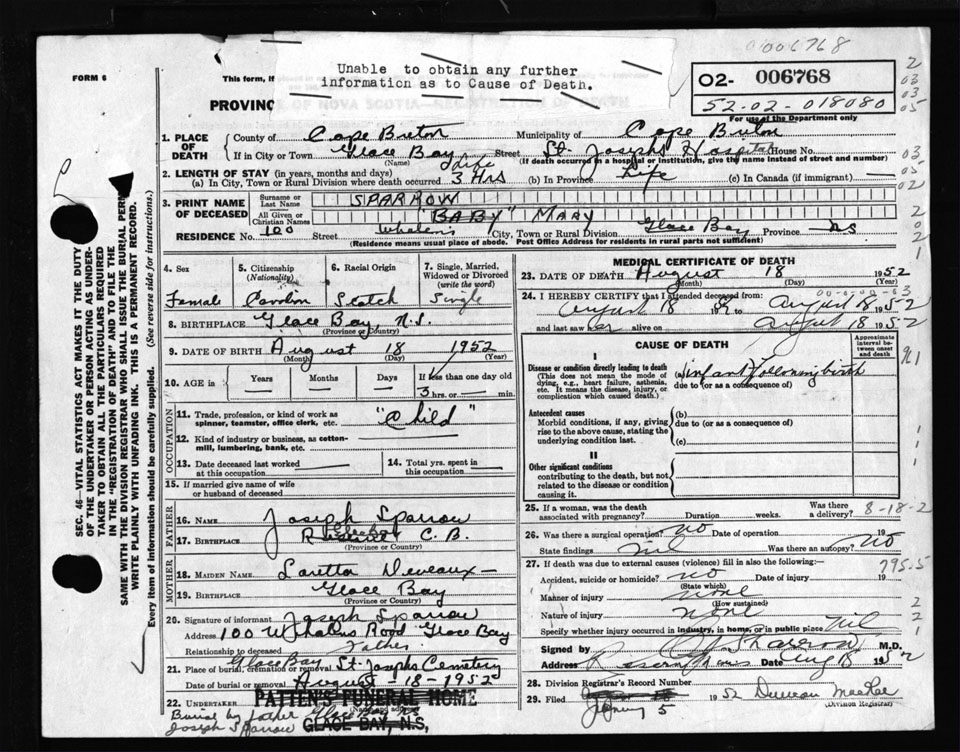 006768
FORM 6
This form, if
Unable to obtain any further
information as to Cause of Death.
02- 006768
52-02-018080
For use of the Department only
PROVINC E OF NOVA SCOTIA—REGISTRATION OF DEATH
1. PLACE OF DEATH
County of Cape Breton
Municipality of Cape Breton
If in City or Town Glace Bay Street St. Josephs Hospital House No.
(Name) (If death occurred in a hospital or institution, give the name instead of street and number)
2. LENGTH OF STAY (in years, months and days)
(a) In City, Town or Rural Division where death occurred Life 3 Hrs (b) In Province Life (c) In Canada (if immigrant)
3. PRINT NAME OF DECEASED
Surname or Last Name SPARROW
All Given or Christian Names "BABY" MARY
RESIDENCE No. 100 Street Whalen's City, Town or Rural Division Glace Bay Province NS
(Residence means usual place of abode. Post Office Address for residents in rural parts not sufficient)
4. Sex
Female
5. Citizenship (Nationality)
6. Racial Origin
Scotch
7. Single, Married, Widowed or Divorced (write the word)
Single
8. BIRTHPLACE Glace Bay N.S.
(Province or Country)
9. DATE OF BIRTH August 18 1952
(Month) (Day) (Year)
10. AGE in Years Months Days If less than one day old
3 hrs. or min.
OCCUPATION
11. Trade, profession, or kind of work as spinner, teamster, office clerk, etc. "a Child"
12. Kind of industry or business, as cotton-mill, lumbering, bank, etc.
13. Date deceased last worked at this occupation
14. Total yrs. spent in this occupation
15. If married give name of wife or husband of deceased
FATHER
16. NAME Joseph Sparrow
17. BIRTHPLACE C.B.
(Province or Country)
MOTHER
18. MAIDEN NAME Loretta Deveaux
19. BIRTHPLACE Glace Bay
(Province or Country)
20. Signature of informant Joseph Sparrow
Address 100 Whalens Road Glace Bay
Relationship to deceased father
21. Place of burial, cremation or removal Glace Bay St. Josephs Cemetery
Date of burial or removal August 18-1952
22. UNDERTAKER PATTEN'S FUNERAL HOME
(Name and address)
GLACE BAY, N.S.
Burial by father
Joseph Sparrow
MEDICAL CERTIFICATE OF DEATH
23. DATE OF DEATH August 18 1952
(Month) (Day) (Year)
24. I HEREBY CERTIFY that I attended deceased from:
August 18 August 18 1952
and last saw her alive on August 18 1952
CAUSE OF DEATH
Approximate interval between onset and death
I
Disease or condition directly leading to death
(This does not mean the mode of dying, e.g., heart failure, asthenia, etc. It means the disease, injury, or complication which caused death.)
(a) infant following birth
due to (or as a consequence of)
Antecedent causes
Morbid conditions, if any, giving rise to the above cause, stating the underlying condition last.
(b)
due to (or as a consequence of)
(c)
II
Other significant conditions
contributing to the death, but not related to the disease or condition causing it.
25. If a woman, was the death associated with pregnancy? Duration weeks. Was there a delivery? 8-18-2
26. Was there a surgical operation? no Date of operation 19
State findings nil Was there an autopsy? no
27. If death was due to external causes (violence) fill in also the following:— 795.5
Accident, suicide or homicide? no Date of injury 19
(State which)
Manner of injury none
(How sustained)
Nature of injury none
Specify whether injury occurred in industry, in home, or in public place nil
Signed by M.D.
Address Date Aug 18 1952
28. Division Registrar's Record Number
29. Filed 1952 Duncan MacRae
(Division Registrar)
SEC. 46—VITAL STATISTICS ACT MAKES IT THE DUTY
OF THE UNDERTAKER OR PERSON ACTING AS UNDER-
TAKER TO OBTAIN ALL THE PARTICULARS REQUIRED
IN THE "REGISTRATION OF DEATH" AND TO FILE THE
SAME WITH THE DIVISION REGISTRAR WHO SHALL ISSUE THE BURIAL PERM
WRITE PLAINLY WITH UNFADING INK. THIS IS A PERMANENT RECORD.
Every item of information should be carefully supplied. (See reverse side for instructions.)